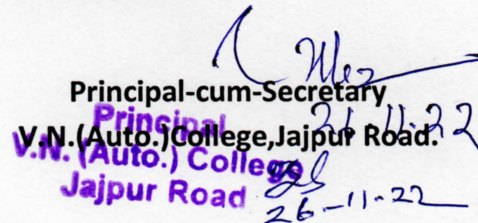 Principal-cum-Secretary
V.N.(Auto.)College,Jajpur Road.
Principal
V.N. (Auto.) College
Jajpur Road
26-11-22